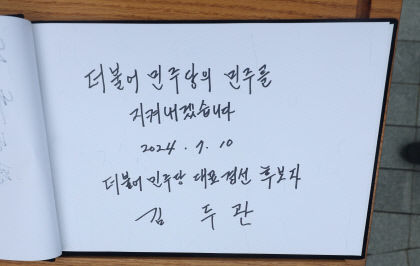 더불어 민주당의 민주를
지켜내겠습니다
2024. 7. 10
더불어 민주당 대표 경선 후보자
김 두 관